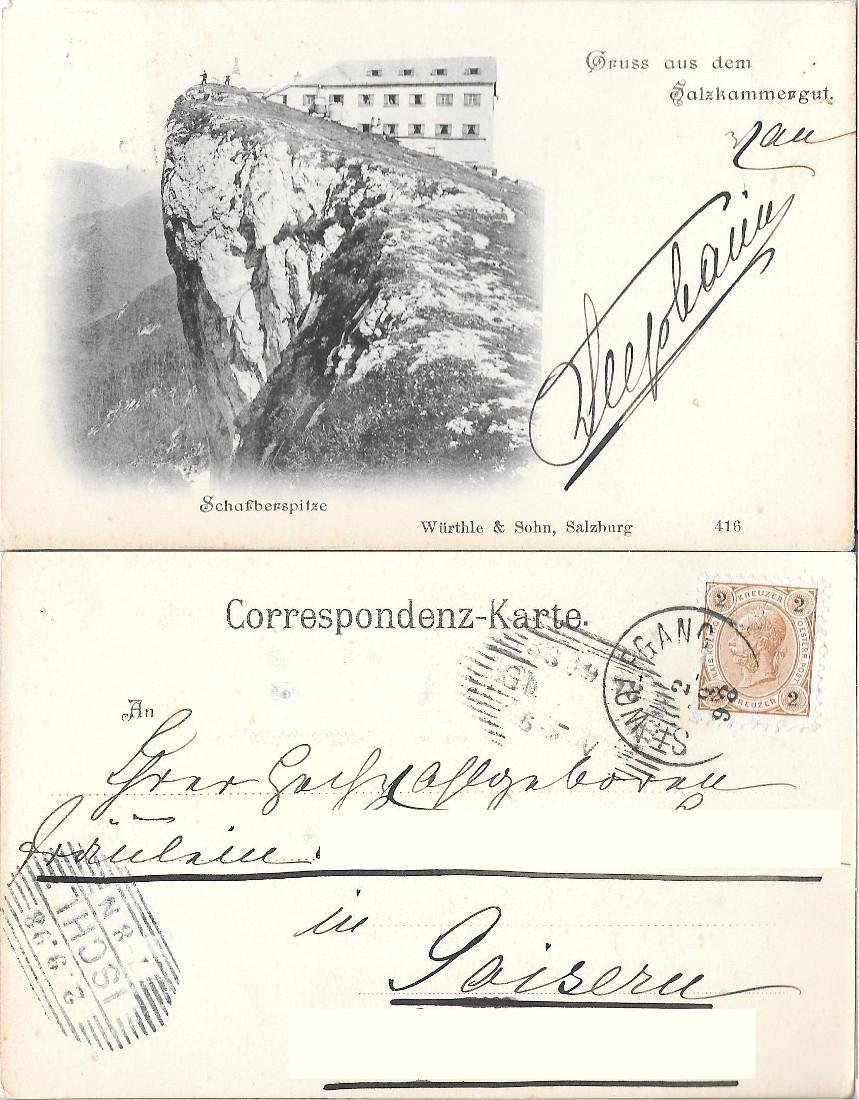 Gruss aus dem
Salzkammergut.
von
Stephanie
Schafberspitze
Würthle & Sohn, Salzburg 416
Correspondenz-Karte.
2 KREUZER 2
OESTERR. POST
KREUZER 2
ST. WOLFGANG
2 9 98
An
Ihrer Hochwohlgeboren
Fräulein
in
Goisern
ISCHL
2.9.98
7-8 N